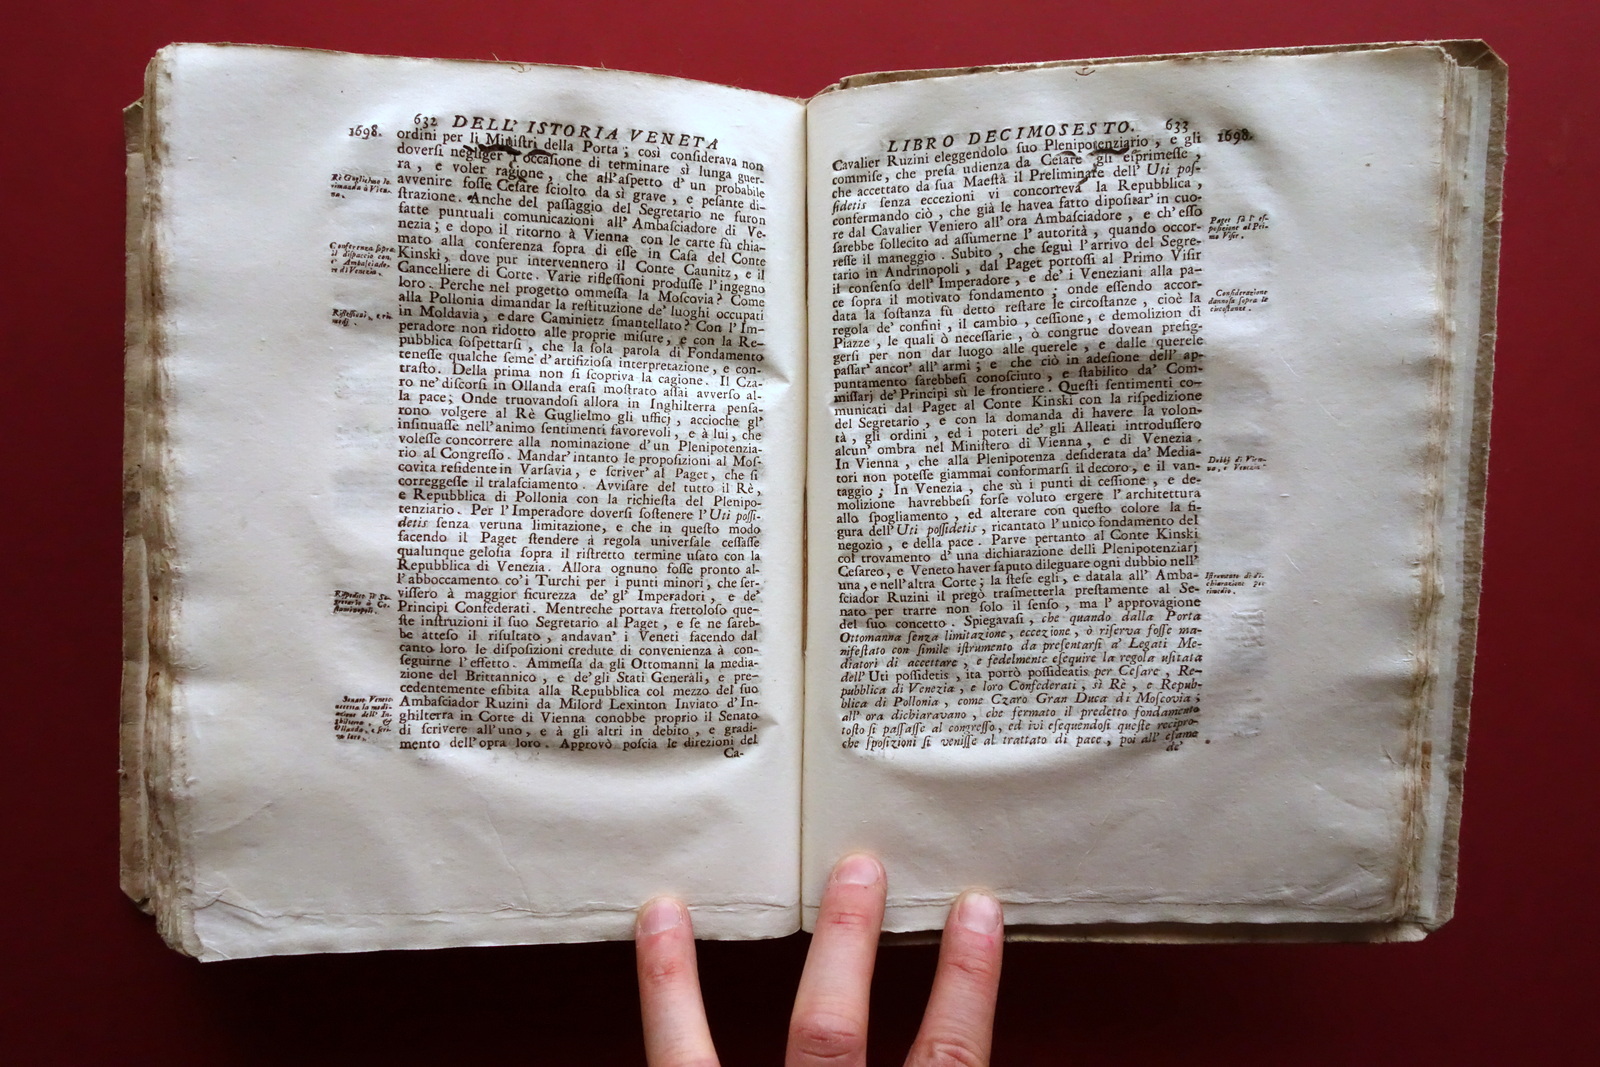 632 DELL' ISTORIA VENETA
1698.
ordini per li Ministri della Porta; così considerava non
doversi negliger l'occasione di terminare sì lunga guer-
ra, e voler ragione, che all'aspetto d'un probabile
avvenire fosse Cesare sciolto da sì grave, e pesante di-
strazione. Anche del passaggio del Segretario ne furon
fatte puntuali comunicazioni all'Ambasciador di Ve-
nezia; e dopo il ritorno à Vienna con le carte fù chia-
mato alla conferenza sopra di esse in Casa del Conte
Kinski, dove pur intervennero il Conte Caunitz, e il
Cancelliere di Corte. Varie riflessioni produsse l'ingegno
loro. Perche nel progetto ommessa la Moscovia? Come
alla Pollonia dimandar la restituzione de' luoghi occupati
in Moldavia, e dare Caminietz smantellato? Con l'Im-
peradore non ridotto alle proprie misure, e con la Re-
pubblica sospettarsi, che la sola parola di Fondamento
tenesse qualche seme d'artifiziosa interpretazione, e con-
trasto. Della prima non si scopriva la cagione. Il Cza-
ro ne' discorsi in Ollanda erasi mostrato assai avverso al-
la pace; Onde truovandosi allora in Inghilterra pensa-
rono volgere al Rè Guglielmo gli ufficj, accioche gl'
insinuasse nell'animo sentimenti favorevoli, e à lui, che
volesse concorrere alla nominazione d'un Plenipotenzia-
rio al Congresso. Mandar' intanto le proposizioni al Mos-
covita residente in Varsavia, e scriver' al Paget, che si
correggesse il tralasciamento. Avvisare del tutto il Rè,
e Repubblica di Pollonia con la richiesta del Plenipo-
tenziario. Per l'Imperadore doversi sostenere l'Uti possi-
detis senza veruna limitazione, e che in questo modo
facendo il Paget stendere à regola universale cessasse
qualunque gelosia sopra il ristretto termine usato con la
Repubblica di Venezia. Allora ognuno fosse pronto al-
l'abboccamento co'i Turchi per i punti minori, che ser-
vissero à maggior sicurezza de' gl' Imperadori, e de'
Principi Confederati. Mentreche portava frettoloso que-
ste instruzioni il suo Segretario al Paget, e se ne sareb-
be atteso il risultato, andavan' i Veneti facendo dal
canto loro le disposizioni credute di convenienza à con-
seguirne l'effetto. Ammessa da gli Ottomanni la media-
zione del Brittannico, e de' gli Stati Generali, e pre-
cedentemente esibita alla Repubblica col mezzo del suo
Ambasciador Ruzini da Milord Lexinton Inviato d'In-
ghilterra in Corte di Vienna conobbe proprio il Senato
di scrivere all'uno, e à gli altri in debito, e gradi-
mento dell'opra loro. Approvò poscia le direzioni del
Ca-
Rè Guglielmo
Conferenza sopra
il dispaccio con
l'Ambasciado-
re di Venezia.
Riflessioni, e ri-
medj.
Senato Veneto
accetta la medi-
azione dell' In-
ghilterra, &
Ollanda, e scri-
ve loro.
LIBRO DECIMOSESTO. 633
1698.
Cavalier Ruzini eleggendolo suo Plenipotenziario, e gli
commise, che presa udienza da Cesare gli esprimesse,
che accettato da sua Maestà il Preliminare dell'Uti pos-
sidetis senza eccezioni vi concorreva la Repubblica,
confermando ciò, che già le havea fatto dipositar' in cuo-
re dal Cavalier Veniero all'ora Ambasciadore, e ch'esso
sarebbe sollecito ad assumerne l'autorità, quando occor-
resse il maneggio. Subito, che seguì l'arrivo del Segre-
tario in Andrinopoli, dal Paget portossi al Primo Visir
il consenso dell'Imperadore, e de' i Veneziani alla pa-
ce sopra il motivato fondamento; onde essendo accor-
data la sostanza fù detto restare le circostanze, cioè la
regola de' confini, il cambio, cessione, e demolizion di
Piazze, le quali ò necessarie, ò congrue dovean prefig-
gersi per non dar luogo alle querele, e dalle querele
passar' ancor' all'armi; e che ciò in adesione dell'ap-
puntamento sarebbesi conosciuto, e stabilito da' Com-
missarj de' Principi sù le frontiere. Questi sentimenti co-
municati dal Paget al Conte Kinski con la rispedizione
del Segretario, e con la domanda di havere la volon-
tà, gli ordini, ed i poteri de' gli Alleati introdussero
alcun' ombra nel Ministero di Vienna, e di Venezia.
In Vienna, che alla Plenipotenza desiderata da' Media-
tori non potesse giammai conformarsi il decoro, e il van-
taggio; In Venezia, che sù i punti di cessione, e de-
molizione havrebbesi forse voluto ergere l'architettura
allo spogliamento, ed alterare con questo colore la fi-
gura dell'Uti possidetis, ricantato l'unico fondamento del
negozio, e della pace. Parve pertanto al Conte Kinski
col trovamento d'una dichiarazione delli Plenipotenziarj
Cesareo, e Veneto haver saputo dileguare ogni dubbio nell'
una, e nell'altra Corte; la stese egli, e datala all'Amba-
sciador Ruzini il pregò trasmetterla prestamente al Se-
nato per trarre non solo il senso, ma l'approvagione
del suo concetto. Spiegavasi, che quando dalla Porta
Ottomanna senza limitazione, eccezione, ò riserva fosse ma-
nifestato con simile istrumento da presentarsi a' Legati Me-
diatori di accettare, e fedelmente eseguire la regola usitata
dell'Uti possidetis, ita porrò possideatis per Cesare, Re-
pubblica di Venezia, e loro Confederati, sì Rè, e Repub-
blica di Pollonia, come Czaro Gran Duca di Moscovia;
all'ora dichiaravano, che fermato il predetto fondamento
tosto si passasse al congresso, ed ivi eseguendosi queste recipro-
che sposizioni si venisse al trattato di pace, poi all'esame
de'
Paget fà l'es-
posizione al Pri-
mo Visir.
Considerazione
dannosa sopra le
circostanze.
Dubbj di Vien-
na, e Venezia.
Istrumento di di-
chiarazione per
rimedio.